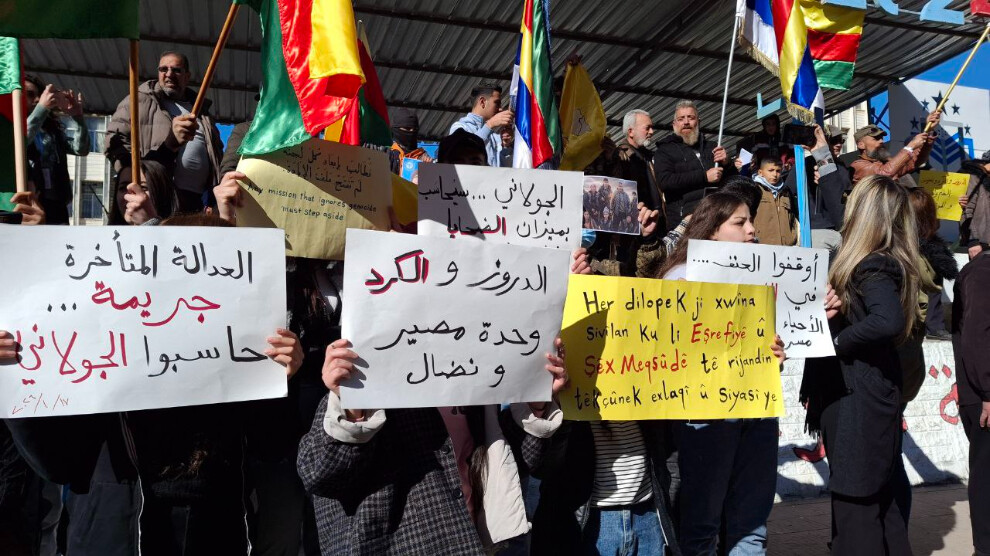 نطالب
لم تتبنّ ملف الإ
Any mission
that ignores genocide
must step aside
الجولاني ... سيحاسب
بميزان الضحايا
أوقفوا العنف ....
في
الأحياء
العدالة المتأخرة
جريمة ...
حاسبوا الجولاني
الدروز و الكرد
وحدة مصير
و نضال
Her dilopek ji xwîna
sivîlan ku li Eşrefiyê û
Şêx Meqsûdê tê rijandin
têkçûnek exlaqî û siyasî ye